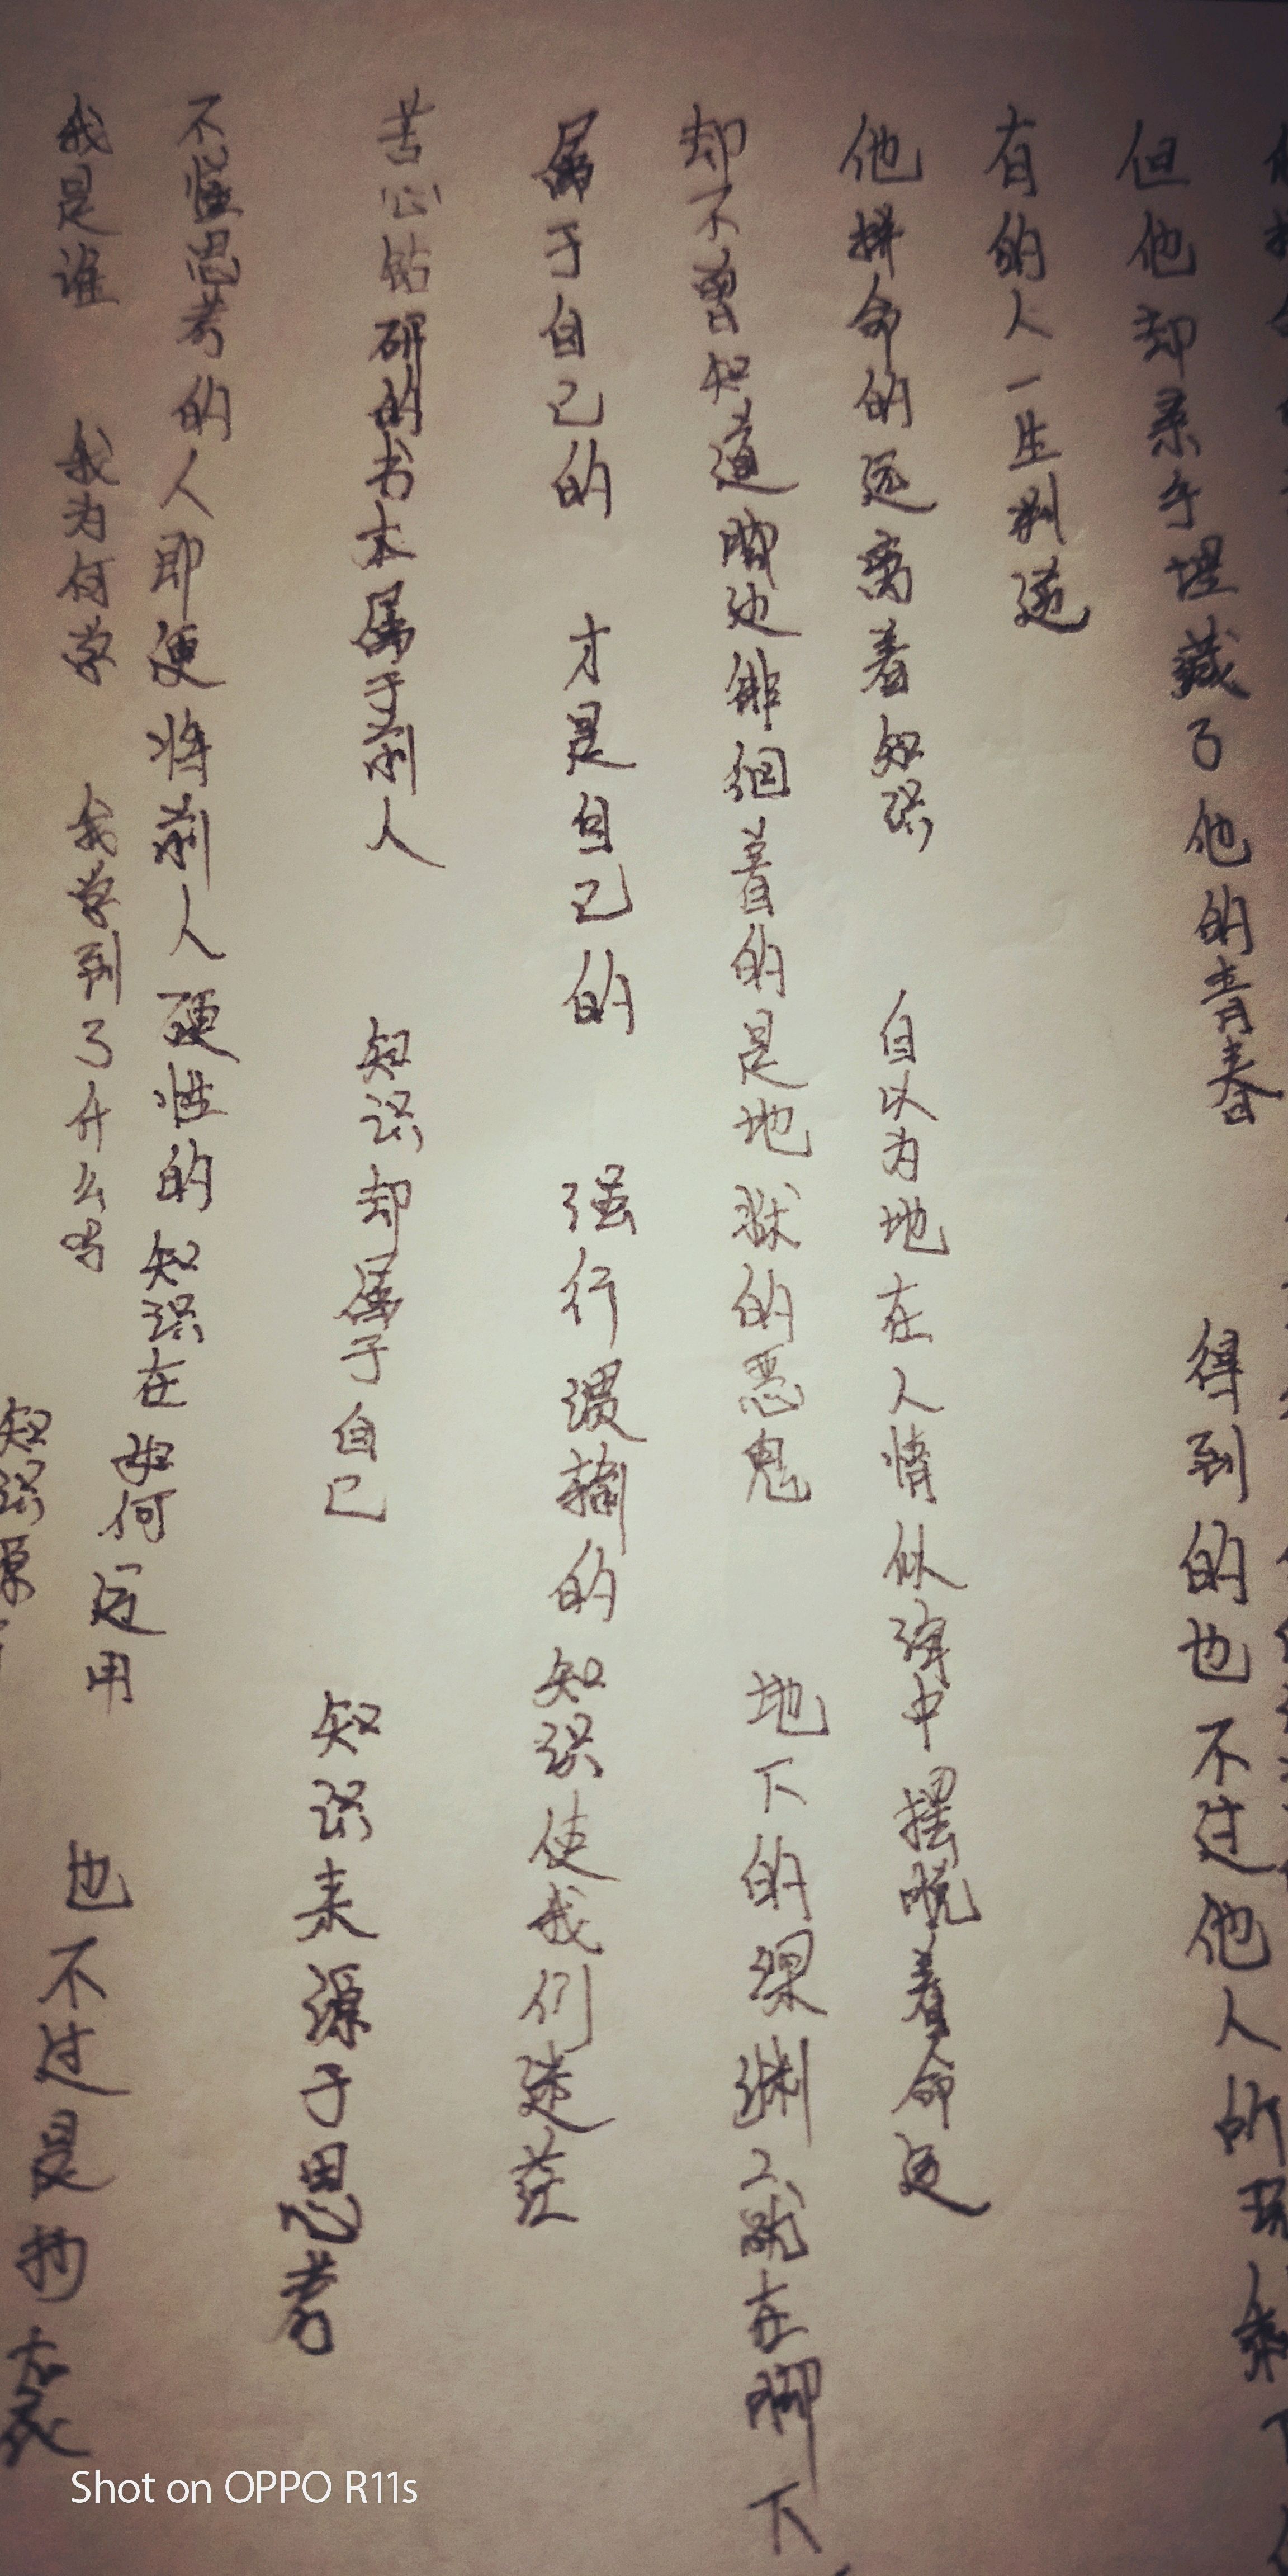 但他却亲手埋藏了他的青春 得到的也不过他人所剩下
有的人一生叛逆
他拼命的远离着知识 自以为地在人情似海中摆脱着命运
却不曾知道脚边徘徊着的是地狱的恶鬼 地下的深渊就在脚下
属于自己的 才是自己的 强行灌输的知识使我们迷茫
苦心钻研的书本属于别人 知识却属于自己 知识来源于思考
不懂思考的人即便将别人硬性的知识在如何运用 也不过是抄袭
我是谁 我为何学 我学到了什么
知识源
Shot on OPPO R11s